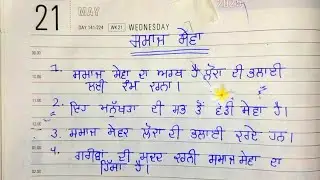 21
MAY
DAY 141-224
WK 21
WEDNESDAY
ਸਮਾਜ ਸੇਵਾ
1. ਸਮਾਜ ਸੇਵਾ ਦਾ ਅਰਥ ਹੈ ਲੋਕਾਂ ਦੀ ਭਲਾਈ
ਲਈ ਕੰਮ ਕਰਨਾ।
2. ਇਹ ਮਨੁੱਖਤਾ ਦੀ ਸਭ ਤੋਂ ਵੱਡੀ ਸੇਵਾ ਹੈ।
3. ਸਮਾਜ ਸੇਵਕ ਲੋਕਾਂ ਦੀ ਭਲਾਈ ਕਰਦੇ ਹਨ।
4. ਗਰੀਬਾਂ ਦੀ ਮਦਦ ਕਰਨੀ ਸਮਾਜ ਸੇਵਾ ਦਾ
ਹਿੱਸਾ ਹੈ।